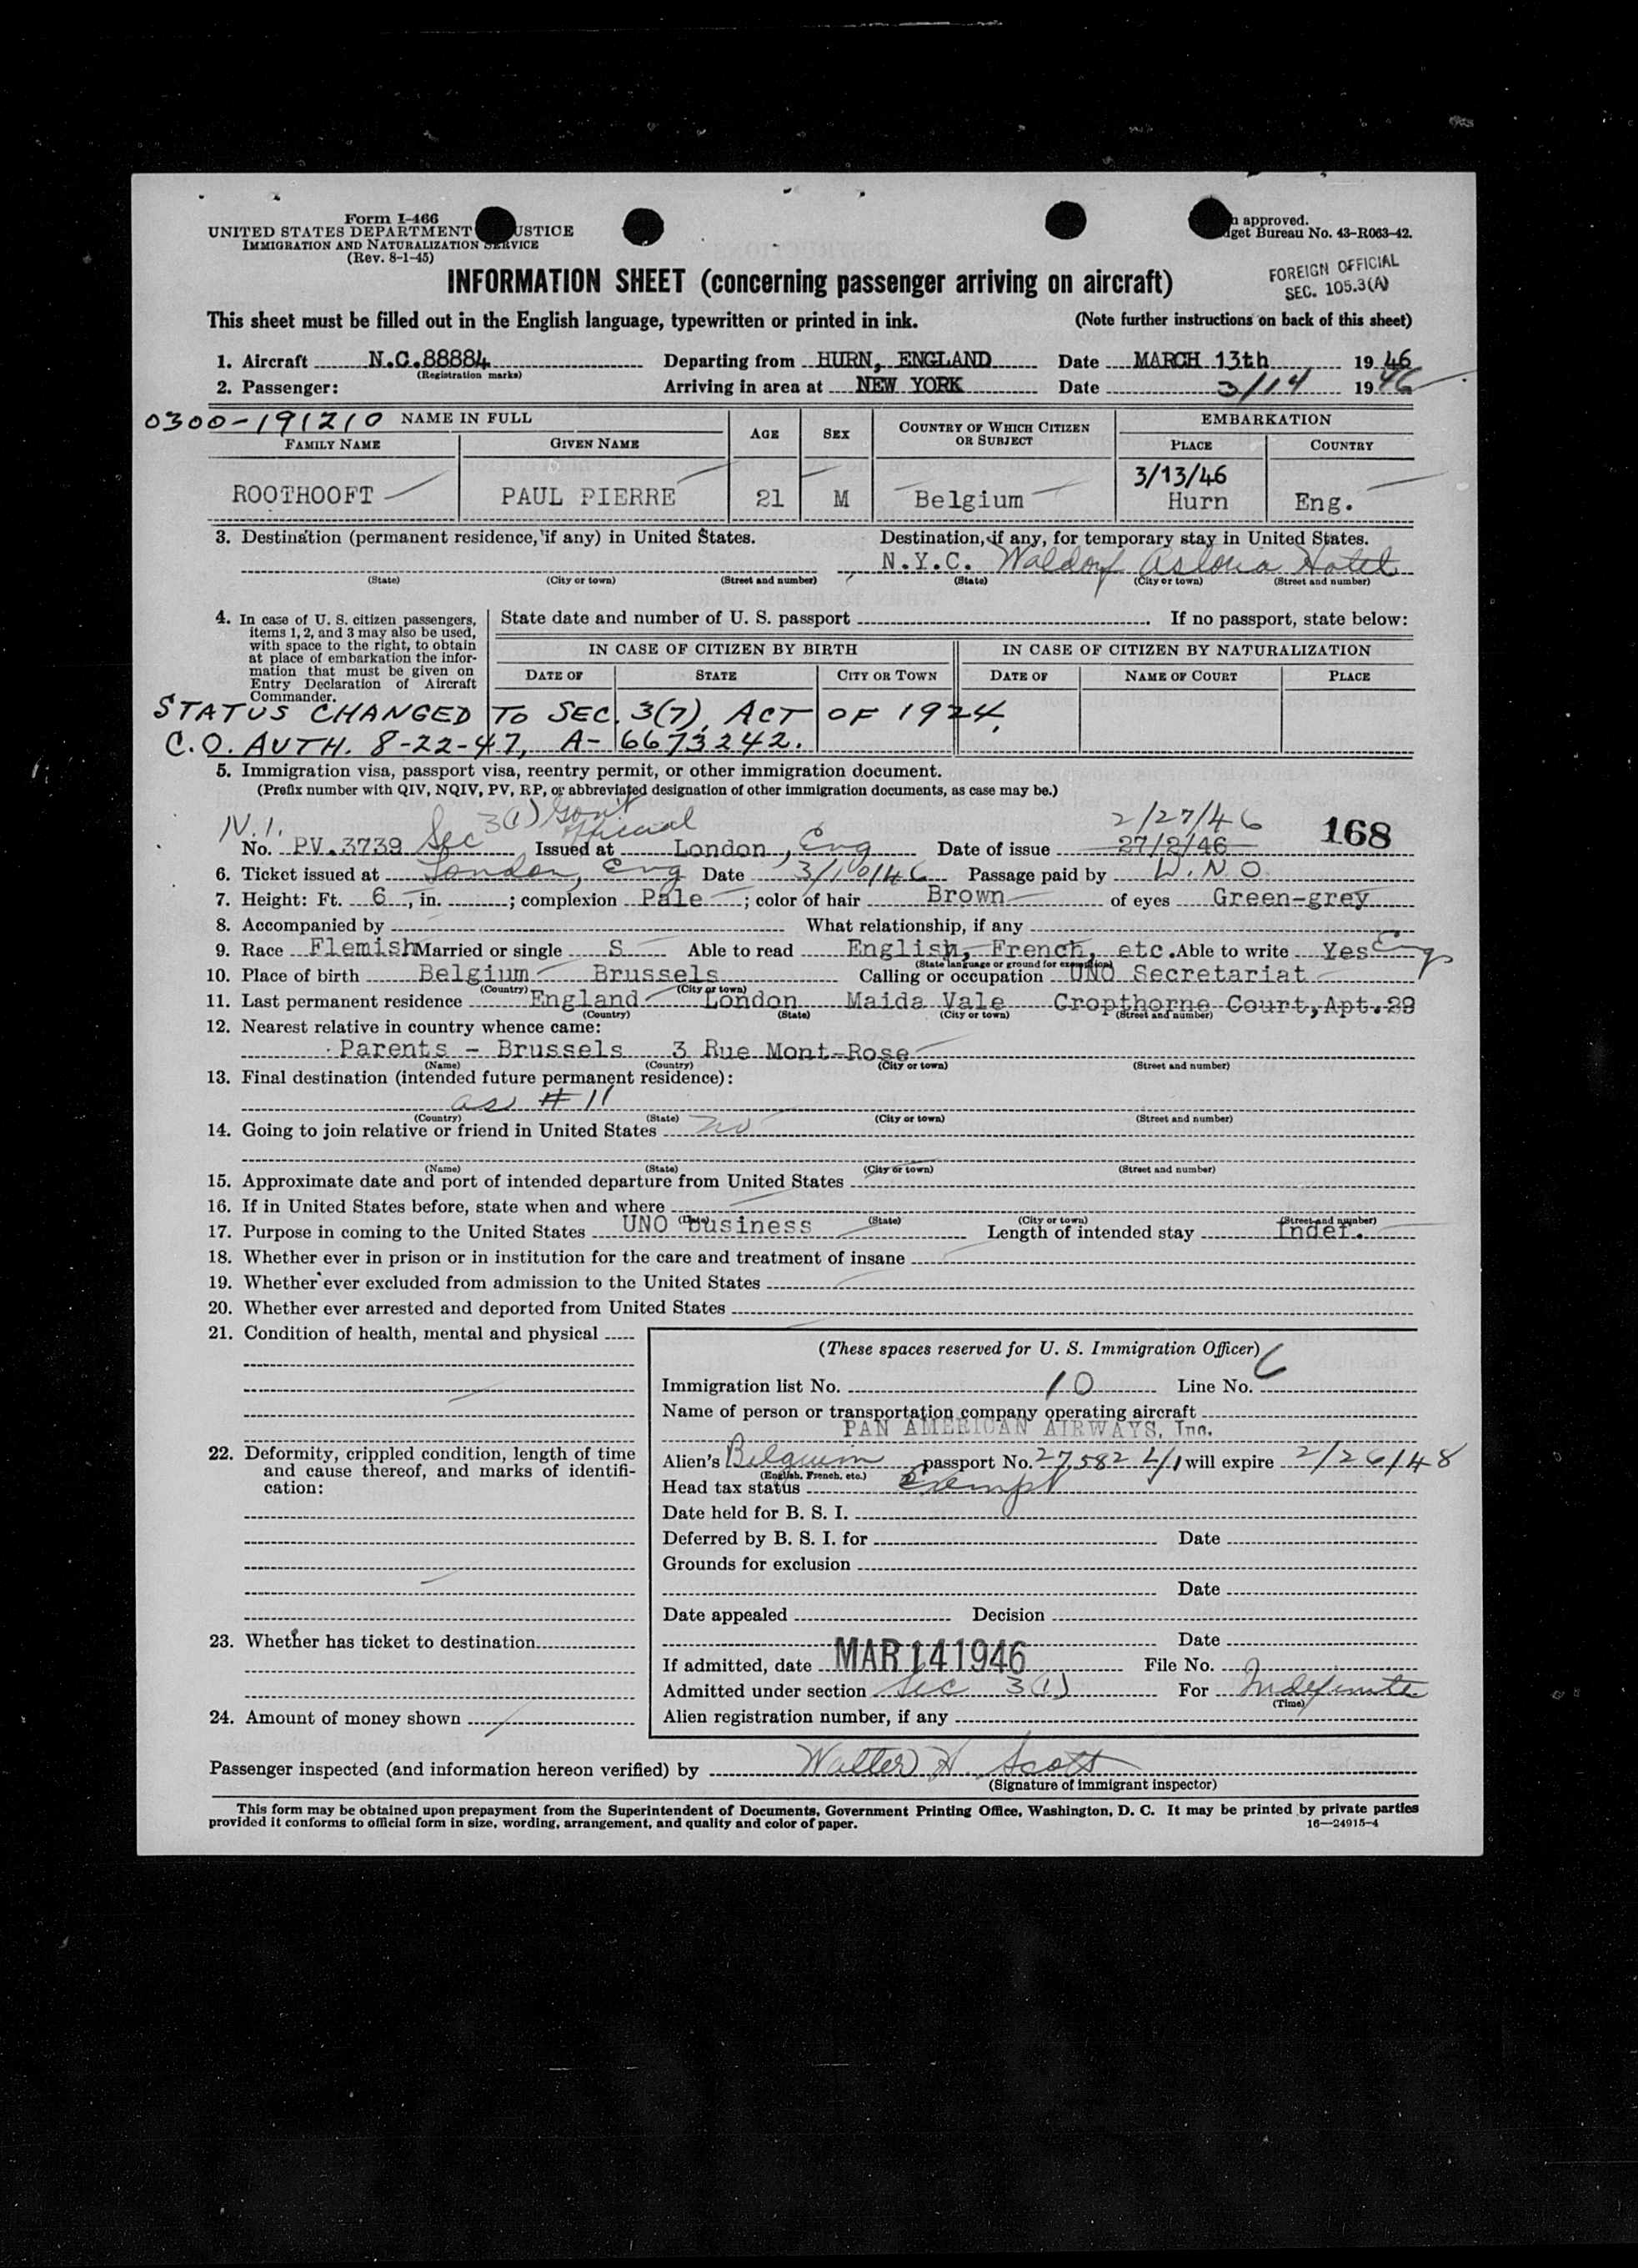 Form I-466
UNITED STATES DEPARTMENT USTICE
IMMIGRATION AND NATURALIZATION SERVICE
(Rev. 8-1-45)
approved.
get Bureau No. 43-R063-42.
INFORMATION SHEET (concerning passenger arriving on aircraft)
FOREIGN OFFICIAL
SEC. 105.3(A)
This sheet must be filled out in the English language, typewritten or printed in ink. (Note further instructions on back of this sheet)
1. Aircraft N.C.88884 Departing from HURN, ENGLAND Date MARCH 13th 1946
(Registration marks)
2. Passenger: Arriving in area at NEW YORK Date 3/14 1946
0300-191210 NAME IN FULL AGE SEX COUNTRY OF WHICH CITIZEN OR SUBJECT EMBARKATION
FAMILY NAME GIVEN NAME PLACE COUNTRY
3/13/46
ROOTHOOFT PAUL PIERRE 21 M Belgium Hurn Eng.
3. Destination (permanent residence, if any) in United States. Destination, if any, for temporary stay in United States.
N.Y.C. Waldorf Astoria Hotel
(State) (City or town) (Street and number) (State) (City or town) (Street and number)
4. In case of U. S. citizen passengers, items 1, 2, and 3 may also be used, with space to the right, to obtain at place of embarkation the information that must be given on Entry Declaration of Aircraft Commander.
State date and number of U. S. passport If no passport, state below:
IN CASE OF CITIZEN BY BIRTH IN CASE OF CITIZEN BY NATURALIZATION
DATE OF STATE CITY OR TOWN DATE OF NAME OF COURT PLACE
STATUS CHANGED TO SEC. 3(7), ACT OF 1924.
C.O. AUTH. 8-22-47, A-6673242.
5. Immigration visa, passport visa, reentry permit, or other immigration document.
(Prefix number with QIV, NQIV, PV, RP, or abbreviated designation of other immigration documents, as case may be.)
N.I. 3(1) Gov't Official 2/27/46 168
No. PV.3739 Sec Issued at London, Eng Date of issue 27/2/46
6. Ticket issued at London, Eng Date 3/10/46 Passage paid by U.N.O
7. Height: Ft. 6, in. ; complexion Pale ; color of hair Brown of eyes Green-grey
8. Accompanied by What relationship, if any
9. Race Flemish Married or single S Able to read English, French, etc. Able to write Yes Eng
(State language or ground for exemption)
10. Place of birth Belgium Brussels Calling or occupation UNO Secretariat
(Country) (City or town)
11. Last permanent residence England London Maida Vale Cropthorne Court, Apt. 29
(Country) (State) (City or town) (Street and number)
12. Nearest relative in country whence came:
Parents - Brussels 3 Rue Mont-Rose
(Name) (Country) (City or town) (Street and number)
13. Final destination (intended future permanent residence):
as # 11
(Country) (State) (City or town) (Street and number)
14. Going to join relative or friend in United States no
(Name) (State) (City or town) (Street and number)
15. Approximate date and port of intended departure from United States
16. If in United States before, state when and where
(Date) (State) (City or town) (Street and number)
17. Purpose in coming to the United States UNO business Length of intended stay Indef.
18. Whether ever in prison or in institution for the care and treatment of insane
19. Whether ever excluded from admission to the United States
20. Whether ever arrested and deported from United States
21. Condition of health, mental and physical
22. Deformity, crippled condition, length of time and cause thereof, and marks of identification:
23. Whether has ticket to destination
24. Amount of money shown
(These spaces reserved for U. S. Immigration Officer)
Immigration list No. 10 Line No. 6
Name of person or transportation company operating aircraft
PAN AMERICAN AIRWAYS, Inc.
Alien's Belgium passport No. 27582 L/1 will expire 2/26/48
(English, French, etc.)
Head tax status Exempt
Date held for B. S. I.
Deferred by B. S. I. for Date
Grounds for exclusion
Date
Date appealed Decision
Date
If admitted, date MAR 14 1946 File No.
Admitted under section Sec 3(1) For Indefinite
(Time)
Alien registration number, if any
Passenger inspected (and information hereon verified) by Walter H Scott
(Signature of immigrant inspector)
This form may be obtained upon prepayment from the Superintendent of Documents, Government Printing Office, Washington, D. C. It may be printed by private parties
provided it conforms to official form in size, wording, arrangement, and quality and color of paper. 16—24915-4